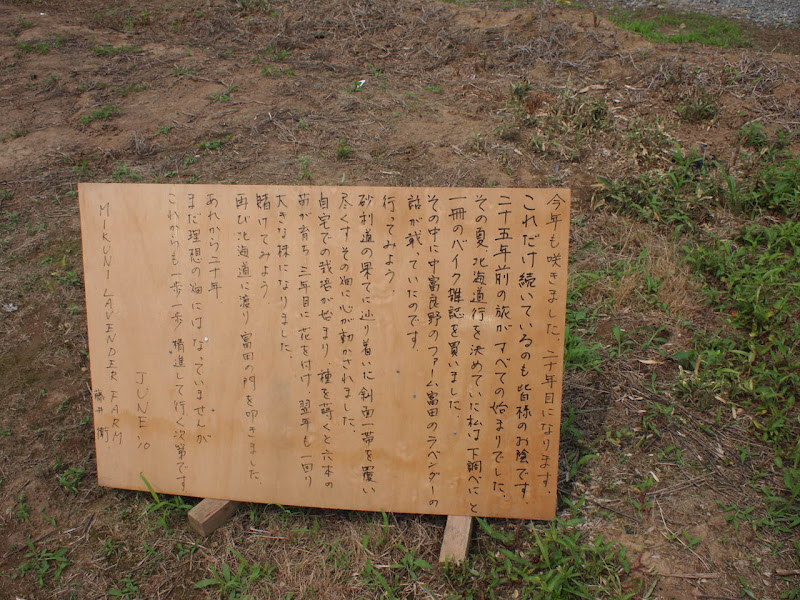 今年も咲きました。二十年目になります。
これだけ続いているのも皆様のお陰です。
二十五年前の旅が すべての始まりでした。
その夏 北海道行を決めていた私は 下調べにと
一冊のバイク雑誌を買いました。
その中に中富良野のファーム富田のラベンダーの
話が載っていたのです。
行ってみよう。
砂利道の果てに辿り着いた 斜面一帯を覆い
尽くす その畑に心が動かされました。
自宅での栽培が始まり、種を蒔くと六本の
苗が育ち 三年目に花を付け、翌年も一回り
大きな株になりました。
賭けてみよう
再び北海道に渡り 富田の門を叩きました
あれから二十年
まだ理想の畑にはなっていませんが
これからも一歩一歩 精進して行く次第です
JUNE '10
MIKUNI LAVENDER FARM
藤井 衛